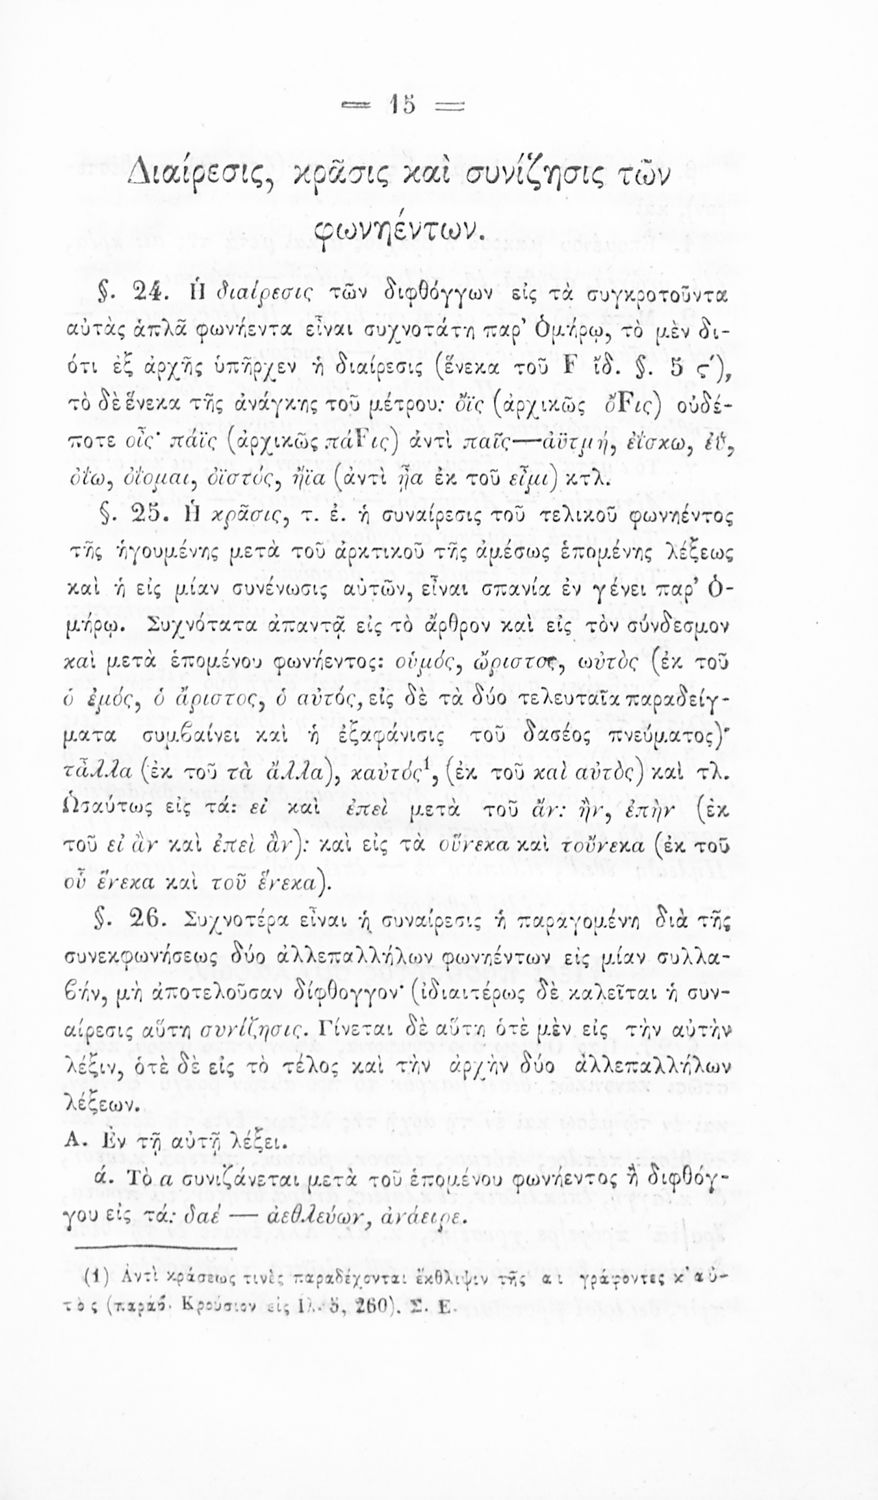 = 15 =
Διαίρεσις, κρᾶσις καὶ συνίζησις τῶν
φωνηέντων.
§. 24. Ἡ διαίρεσις τῶν διφθόγγων εἰς τὰ συγκροτοῦντα
αὐτὰς ἁπλᾶ φωνήεντα εἶναι συχνοτάτη παρ’ Ὁμήρῳ, τὸ μὲν δι-
ότι ἐξ ἀρχῆς ὑπῆρχεν ἡ διαίρεσις (ἕνεκα τοῦ F ἴδ. §. 5 ς′),
τὸ δὲ ἕνεκα τῆς ἀνάγκης τοῦ μέτρου: ὄϊς (ἀρχικῶς ὄFις) οὐδέ-
ποτε οἶς· πάϊς (ἀρχικῶς πάFις) ἀντὶ παῖς—ἀϋτμή, ἐΐσκω, ἐΰ,
ὀΐω, ὀΐομαι, ὀϊστός, ἤϊα (ἀντὶ ᾖα ἐκ τοῦ εἶμι) κτλ.
§. 25. Ἡ κρᾶσις, τ. ἐ. ἡ συναίρεσις τοῦ τελικοῦ φωνηέντος
τῆς ἡγουμένης μετὰ τοῦ ἀρκτικοῦ τῆς ἀμέσως ἑπομένης λέξεως
καὶ ἡ εἰς μίαν συνένωσις αὐτῶν, εἶναι σπανία ἐν γένει παρ’ Ὁ-
μήρῳ. Συχνότατα ἀπαντᾷ εἰς τὸ ἄρθρον καὶ εἰς τὸν σύνδεσμον
καὶ μετὰ ἑπομένου φωνήεντος: οὑμός, ὥριστος, ωὑτὸς (ἐκ τοῦ
ὁ ἐμός, ὁ ἄριστος, ὁ αὐτός, εἰς δὲ τὰ δύο τελευταῖα παραδείγ-
ματα συμβαίνει καὶ ἡ ἐξαφάνισις τοῦ δασέος πνεύματος)·
τἆλλα (ἐκ τοῦ τὰ ἄλλα), καὐτός¹, (ἐκ τοῦ καὶ αὐτὸς) καὶ τλ.
Ὡσαύτως εἰς τά: εἰ καὶ ἐπεὶ μετὰ τοῦ ἄν: ἢν, ἐπὴν (ἐκ
τοῦ εἰ ἂν καὶ ἐπεὶ ἂν): καὶ εἰς τὰ οὕνεκα καὶ τοὔνεκα (ἐκ τοῦ
οὗ ἕνεκα καὶ τοῦ ἕνεκα).
§. 26. Συχνοτέρα εἶναι ἡ συναίρεσις ἡ παραγομένη διὰ τῆς
συνεκφωνήσεως δύο ἀλλεπαλλήλων φωνηέντων εἰς μίαν συλλα-
βήν, μὴ ἀποτελοῦσαν δίφθογγον· (ἰδιαιτέρως δὲ καλεῖται ἡ συν-
αίρεσις αὕτη συνίζησις. Γίνεται δὲ αὕτη ὁτὲ μὲν εἰς τὴν αὐτὴν
λέξιν, ὁτὲ δὲ εἰς τὸ τέλος καὶ τὴν ἀρχὴν δύο ἀλλεπαλλήλων
λέξεων.
Α. Ἐν τῇ αὐτῇ λέξει.
ά. Τὸ α συνιζάνεται μετὰ τοῦ ἑπομένου φωνήεντος ἢ διφθόγ-
γου εἰς τά: δαέ — ἀεθλεύων, ἀνάειρε.
(1) Ἀντὶ κράσεως τινὲς παραδέχονται ἔκθλιψιν τῆς αι γράφοντες κ’ αὐ-
τὸς (παράδ. Κρούσιον εἰς Ἰλ. δ, 260). Σ. Ε.